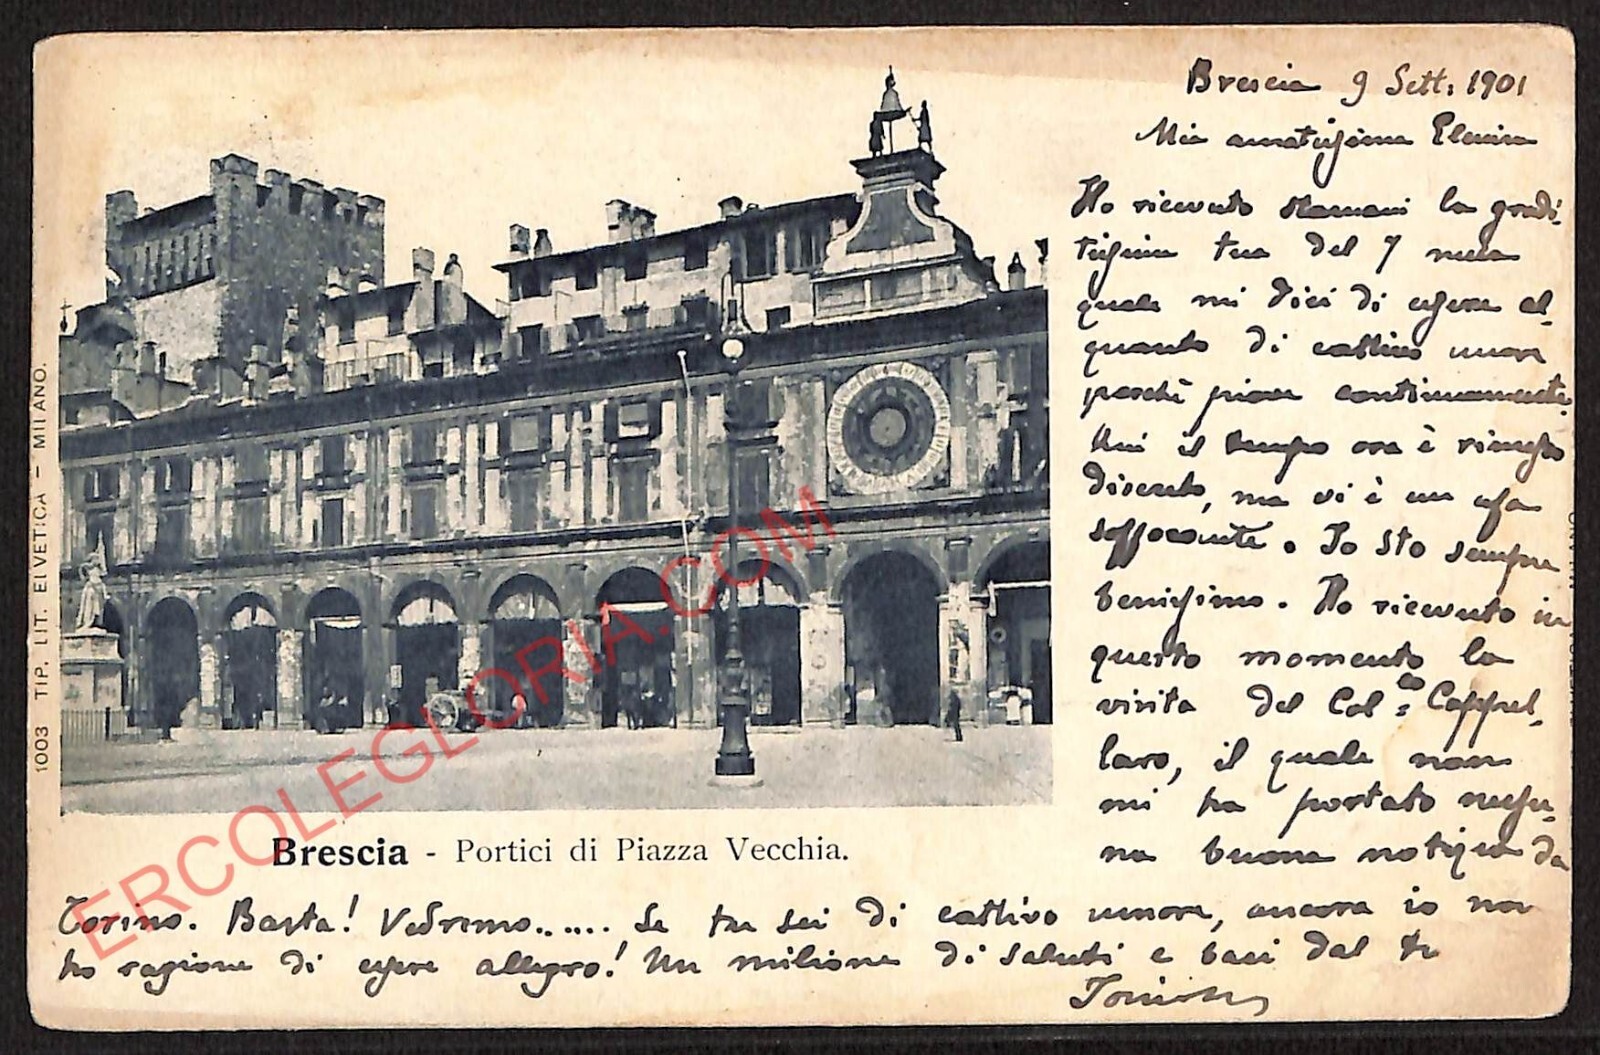 Brescia 9 Sett. 1901
Mia amatissima Elvira
Ho ricevuto stamani la gradi-
tissima tua del 7 nella
quale mi dici di essere al-
quanto di cattivo umore
perchè piove continuamente.
Qui il tempo ora è rimesso
discreto, ma vi è un afa
soffocante. Io sto sempre
benissimo. Ho ricevuto in
questo momento la
visita del Col. Cappel-
laro, il quale non
mi ha portato nessu-
na buona notizia da
Torino. Basta! Vedremo...... Se tu sei di cattivo umore, ancora io non
ho ragione di essere allegro! Un milione di saluti e baci dal tu
Brescia - Portici di Piazza Vecchia.
1003 TIP. LIT. ELVETICA - MILANO.
ERCOLEGLORIA.COM